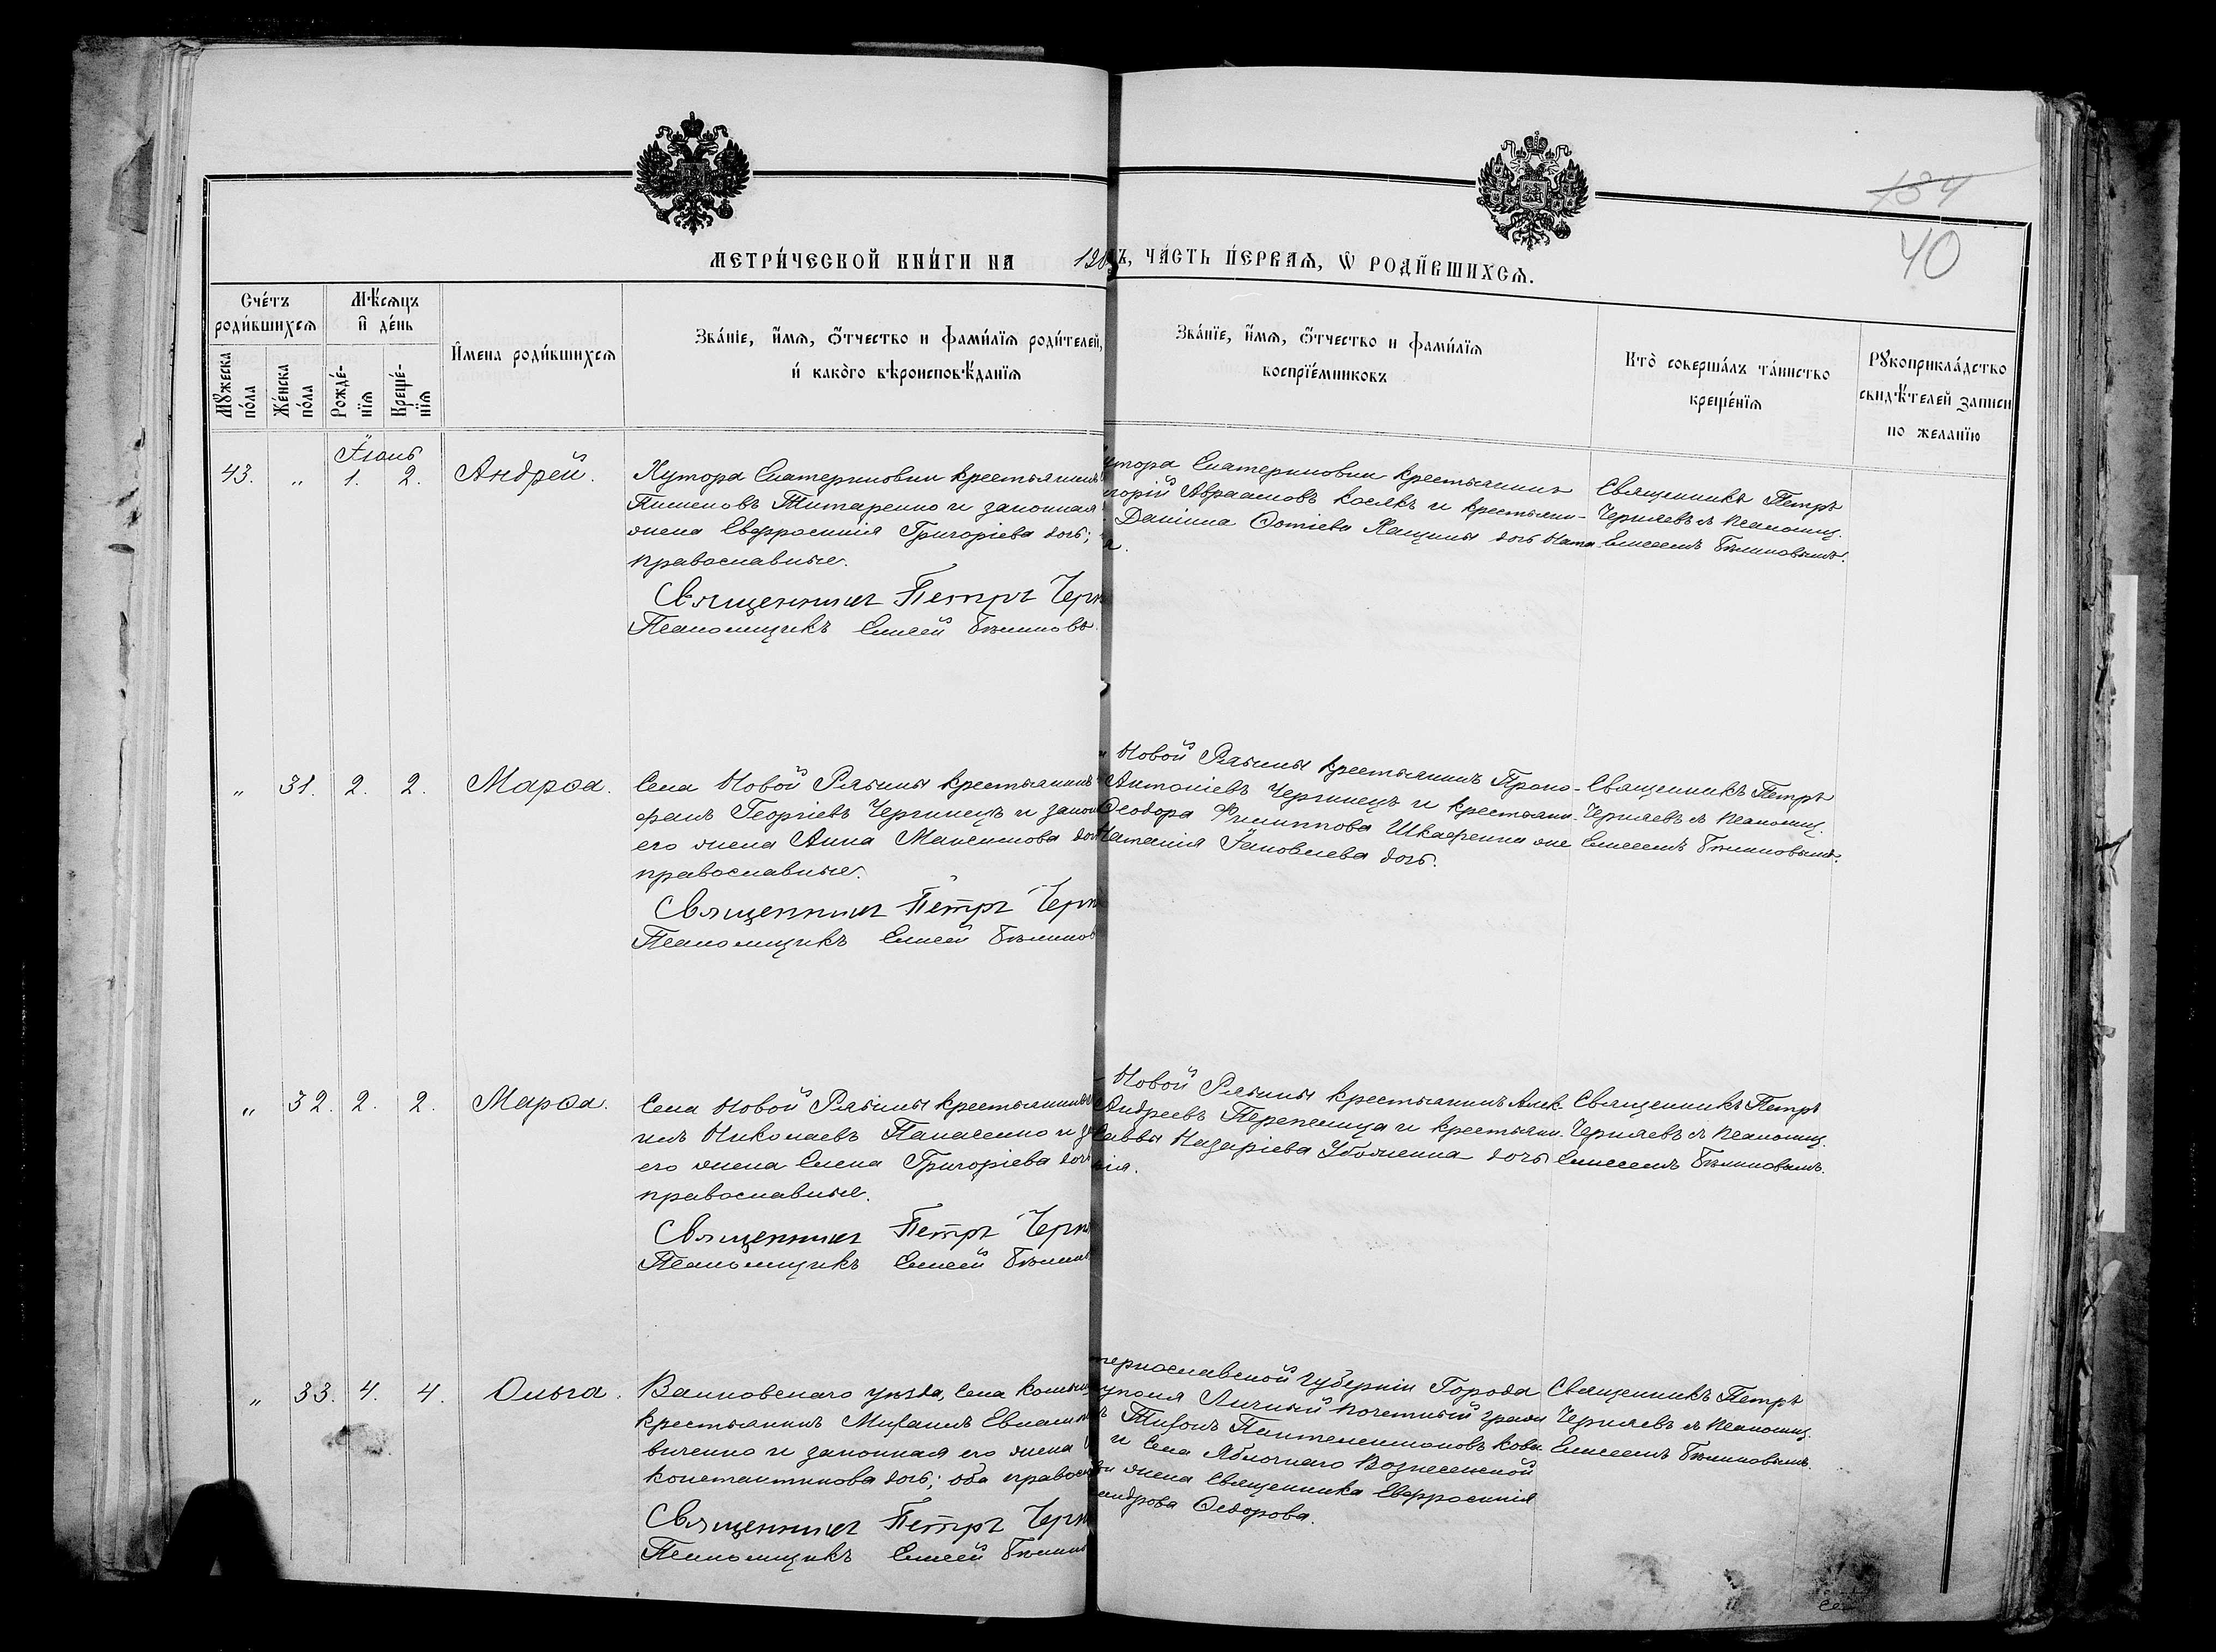 134
40
МЕТРИ́ЧЕСКОЙ КНИ́ГИ НА
ЧА́СТЬ ПЕ́РВАѦ, Ѡ҆ РОДИ́ВШИХСѦ.
Сче́тъ роди́вшихсѧ
Мꙋ́жеска по́ла
Же́нска по́ла
Мѣ́сѧцъ и҆ де́нь
Рожде́нїѧ
Креще́нїѧ
И҆мена роди́вшихсѧ
Зва́нїе, и҆́мѧ, ѻ҆́тчество и фами́лїѧ роди́телей,
и҆ како́гѡ вѣроисповѣ́данїѧ
Зва́нїе, и҆́мѧ, ѻ҆́тчество и фами́лїѧ
воспрїе́мниковъ
Кто̀ соверша́лъ та́инство
креще́нїѧ
Рꙋкоприкла́дство
свидѣ́телей записи
по желанїю
Іюнь
43. „ 1. 2. Андрей.
Хутора Екатериновки крестьянинъ
Пименовъ Титаренко и законная
жена Евфросинія Григоріева дочь;
православные.
Священникъ Петръ Черн
Псаломщикъ Елисей Бѣлиновъ.
утора Екатериновки крестьянинъ
горій Авраамовъ Косякъ и крестьяни-
Даніила Фотіева Лащины дочь Ната
Священникъ Петръ
Черняевъ съ псаломщ.
Елисеемъ Бѣлиновымъ.
„ 31. 2. 2. Марѳа.
Села Новой Рябины крестьянинъ
фанъ Георгіевъ Чергинецъ и закон
его жена Анна Максимова доч
православные.
Священникъ Петръ Черн
Псаломщикъ Елисей Бѣлинов
Новой Рябины крестьянинъ Проко-
Антоніевъ Чергинецъ и крестьяни-
Ѳеодора Филиппова Шкаренка же
Наталія Іаковлева дочь.
Священникъ Петръ
Черняевъ съ псаломщ.
Елисеемъ Бѣлиновымъ.
„ 32. 2. 2. Марѳа.
Села Новой Рябины крестьянинъ
илъ Николаевъ Панасенко и за
его жена Елена Григоріева дочь
православные.
Священникъ Петръ Черн
Псаломщикъ Елисей Бѣлин
Новой Рябины крестьянинъ Алек-
Андреевъ Перепелица и крестьяни-
Саввы Назаріева Убоженка дочь
нія.
Священникъ Петръ
Черняевъ съ псаломщ.
Елисеемъ Бѣлиновымъ.
„ 33. 4. 4. Ольга.
Валковскаго уѣзда, села
крестьянинъ Михаилъ
виченко и законная его жена
Константинова дочь; оба правос
Священникъ Петръ Черн
Псаломщикъ Елисей Бѣлин
теринославской губерніи Города
уполя Личный почетный граж
Тихонъ Пантелеимоновъ Кова
и села Яблочнаго Вознесенской
ви жена священника Евфросинія
сандрова Ѳедорова.
Священникъ Петръ
Черняевъ съ псаломщ.
Елисеемъ Бѣлиновымъ.